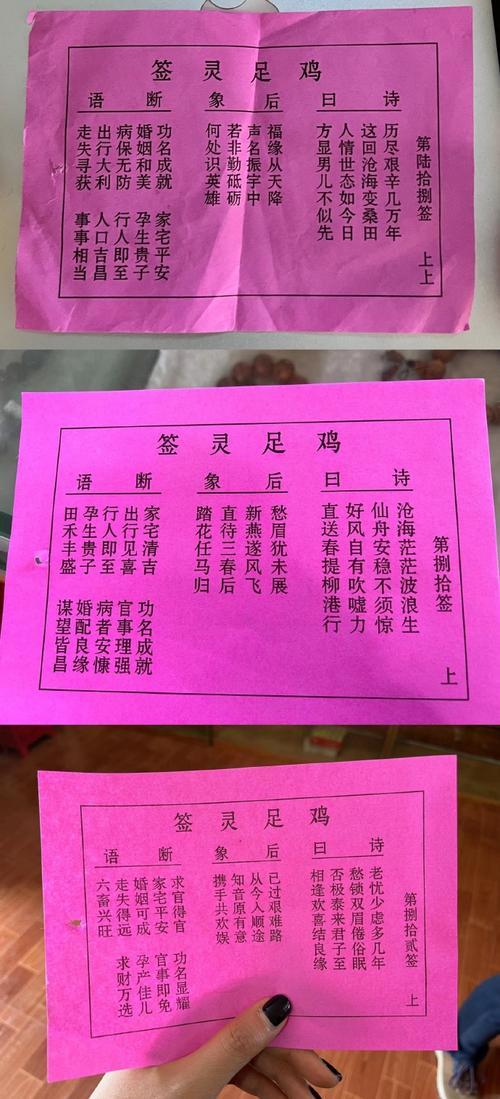 鸡足灵签
第陆拾捌签 上上
诗曰
历尽艰辛几万年
这回沧海变桑田
人情世态如今日
方显男儿不似先
后象
福缘从天降
声名振宇中
若非勤砥砺
何处识英雄
断语
功名成就 家宅平安
婚姻和美 孕生贵子
病保无防 行人即至
出行大利 人口吉昌
走失寻获 事事相当
鸡足灵签
第捌拾签 上
诗曰
沧海茫茫波浪生
仙舟安稳不须惊
好风自有吹嘘力
直送春提柳港行
后象
愁眉犹未展
新燕遂风飞
直待三春后
踏花任马归
断语
家宅清吉 功名成就
出行见喜 官事理强
行人即至 病者安慷
孕生贵子 婚配良缘
田禾丰盛 谋望皆昌
鸡足灵签
第捌拾贰签 上
诗曰
老忧少虑多几年
愁锁双眉倦俗眠
否极泰来君子至
相逢欢喜结良缘
后象
已过艰难路
从今入顺途
知音原有意
携手共欢娱
断语
求官得官 功名显耀
家宅平安 官事即免
婚姻可成 孕产佳儿
走失得远 求财万选
六畜兴旺